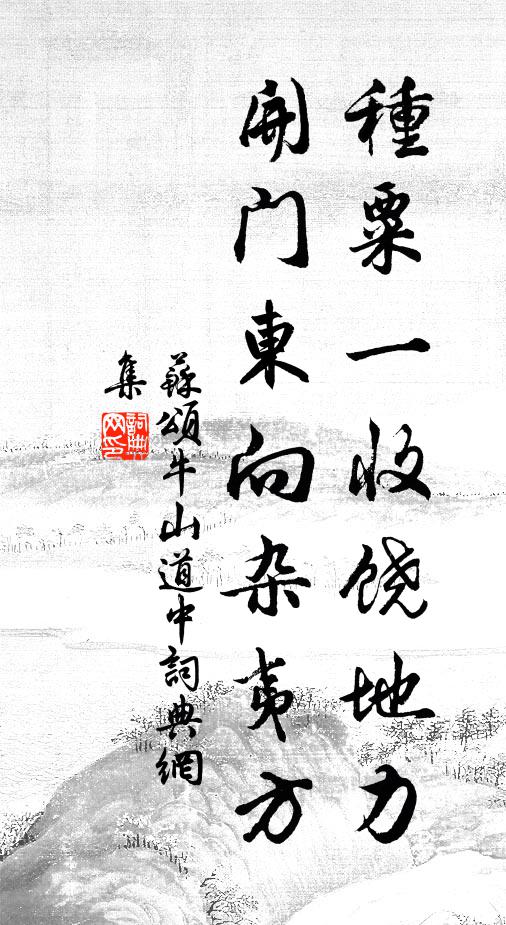 種粟一收饶地力
開门東向杂夷方
蘇頌牛山道中詞典網
集